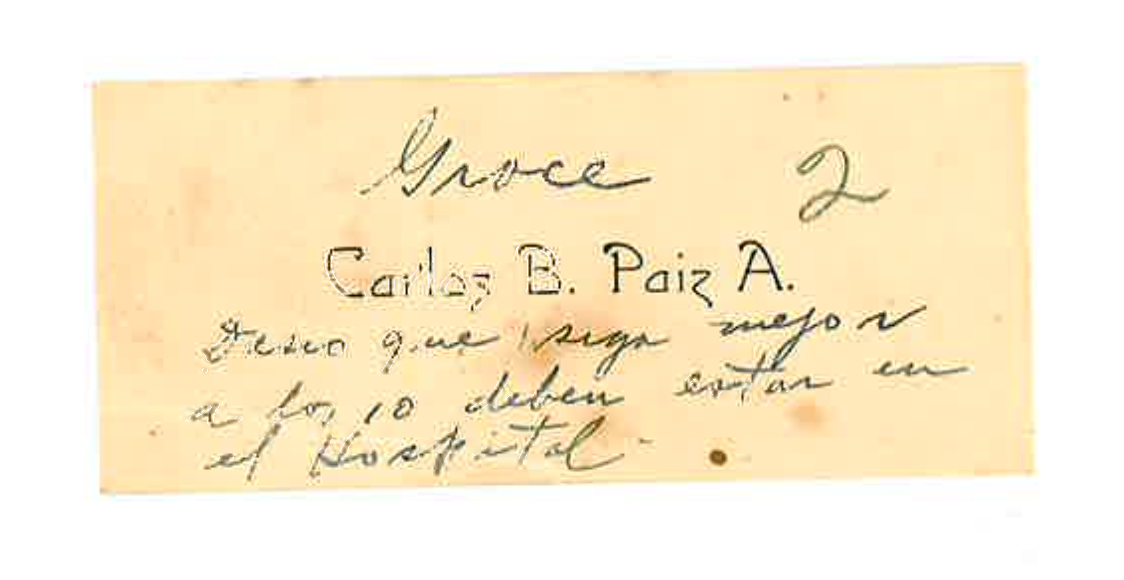 Groce 2
Carlos B. Paiz A.
Deseo que siga mejor
a los 10 deben estar en
el Hospital